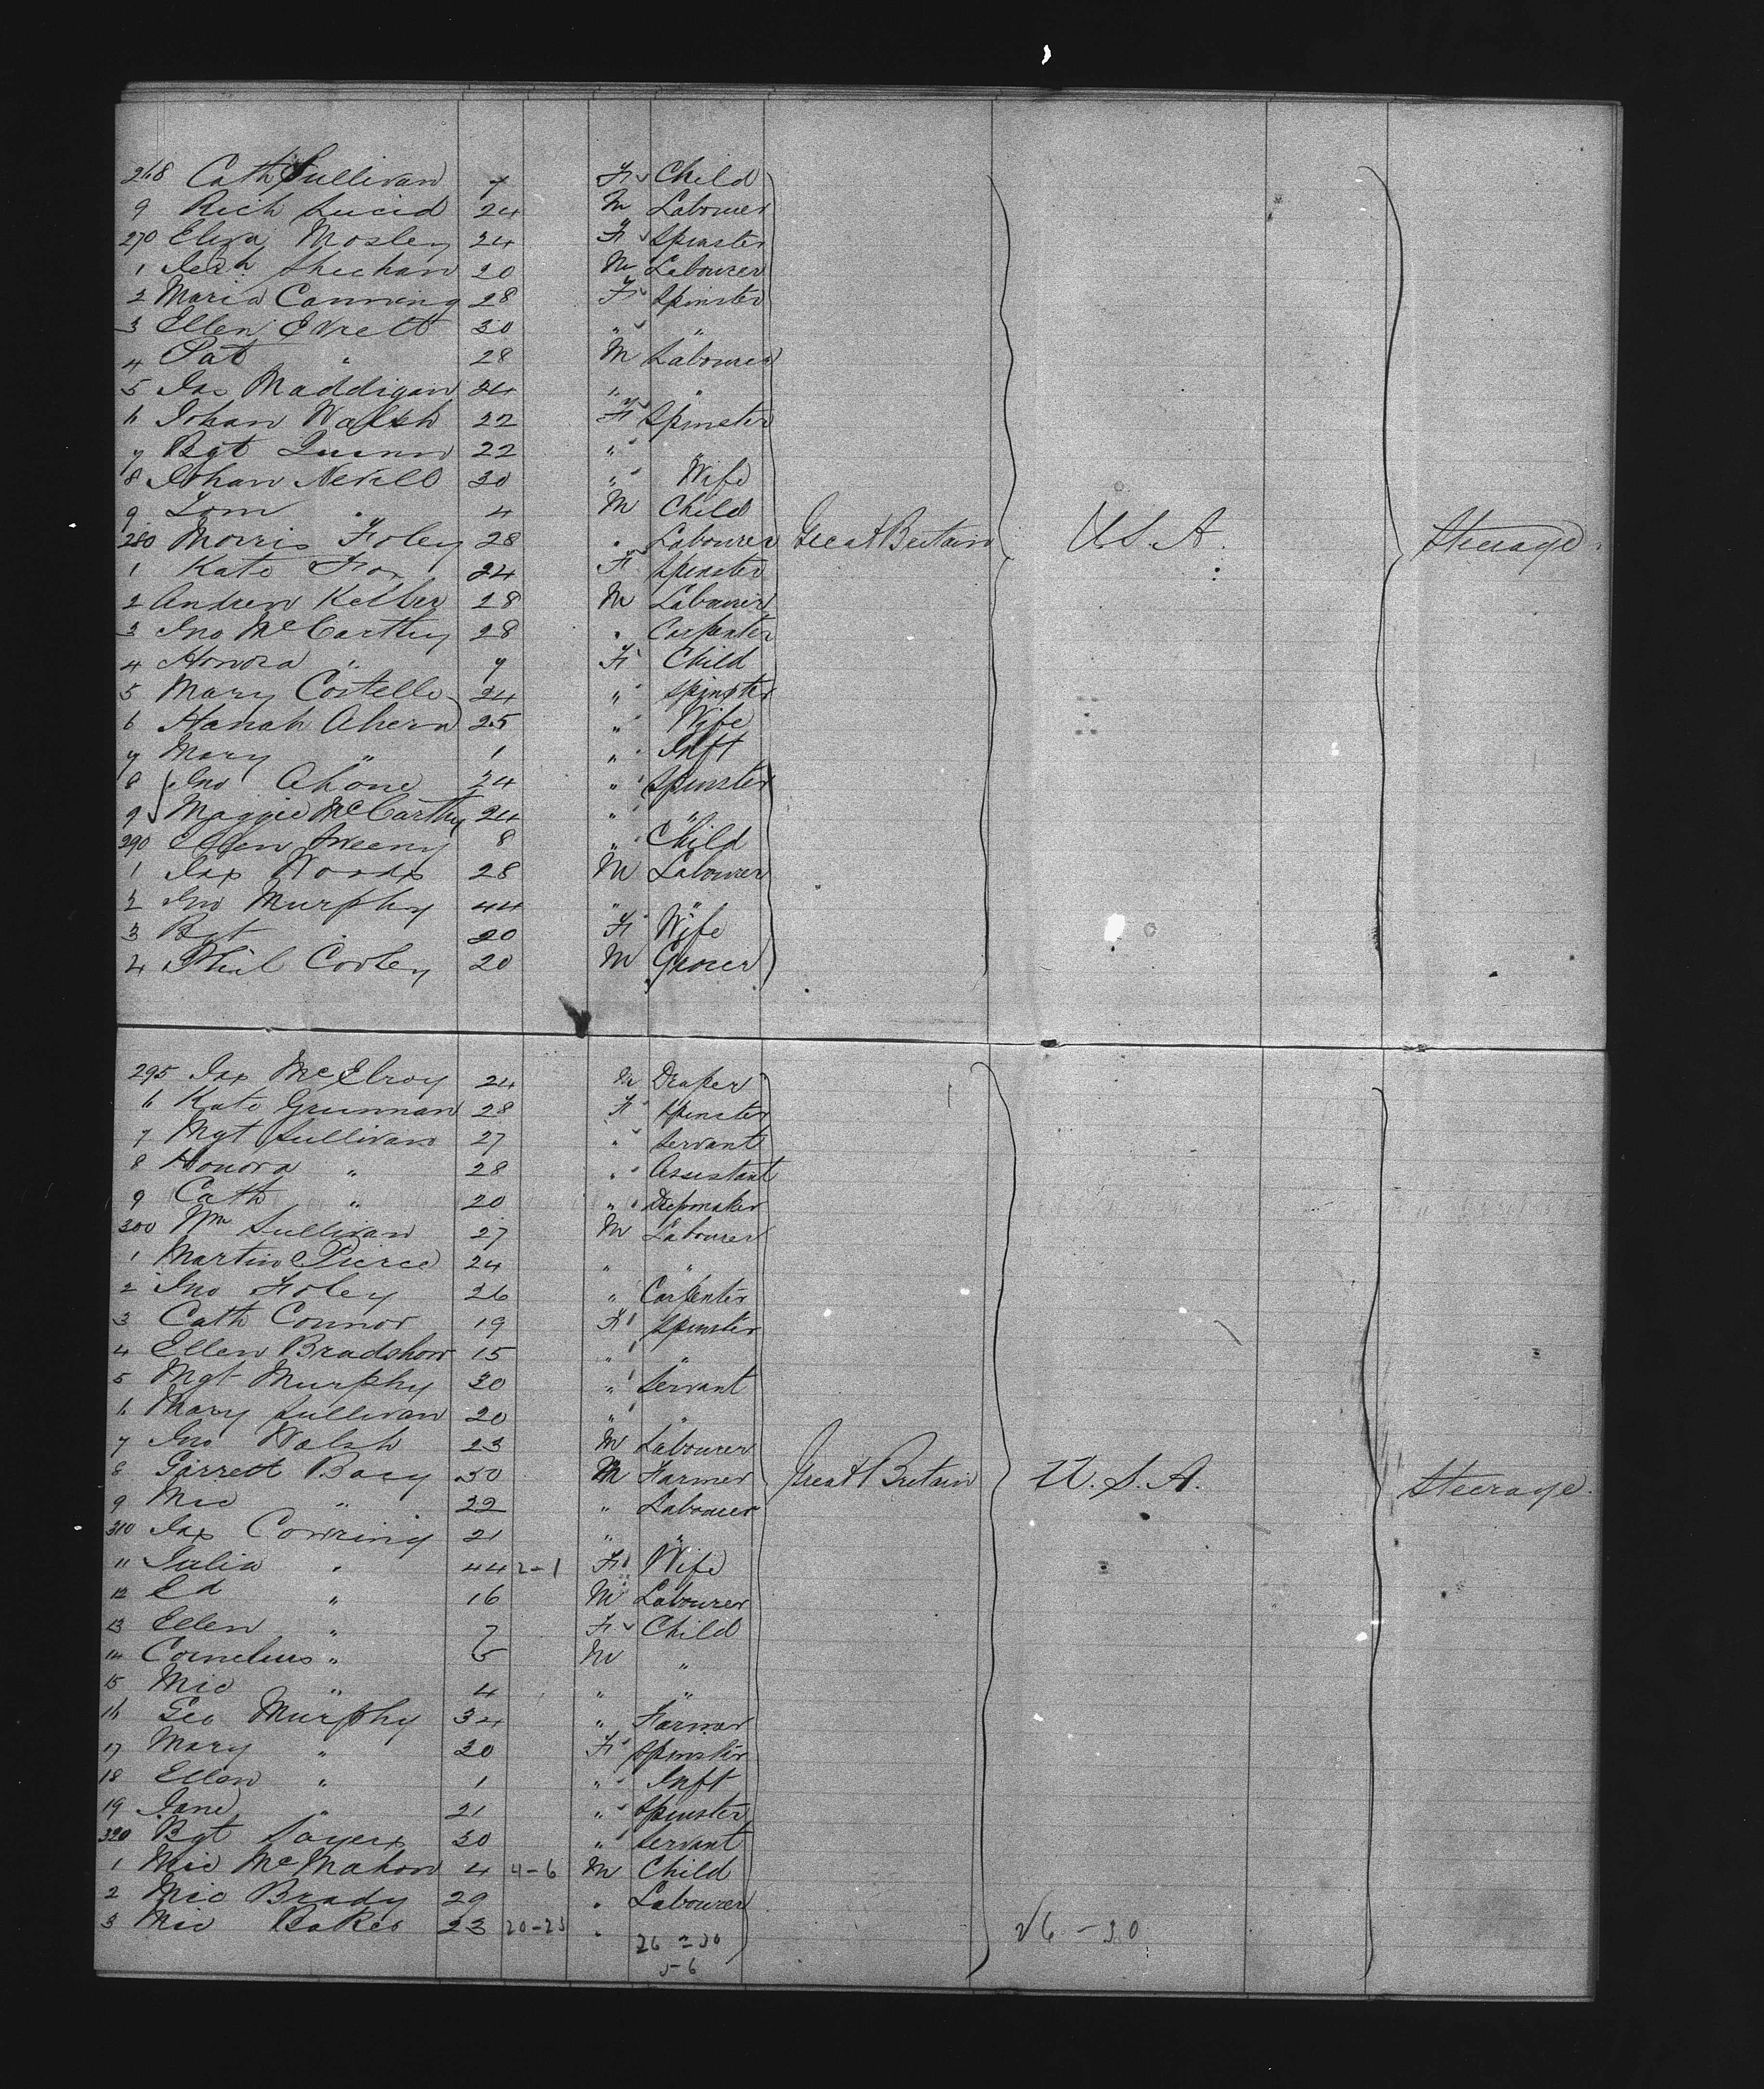 268 Cath Sullivan 7 F Child
9 Rich Lucid 24 M Labourer
270 Eliza Mosley 24 F Spinster
1 Jerh Sheehan 20 M Labourer
2 Maria Canning 28 F Spinster
3 Ellen Evrett 30 " "
4 Pat " 28 M Labourer
5 Jas Maddigan 24 " "
6 Johan Walsh 22 F Spinster
7 Bgt Quinn 22 " "
8 Johan Nevill 30 " Wife
9 Tom " 4 M Child
280 Morris Foley 28 " Labourer Great Britain U.S.A. Steerage.
1 Kate Fox 24 F Spinster
2 Andrew 28 M Labourer
3 Jno McCarthy 28 " Carpenter
4 Honora " 9 F Child
5 Mary Costello 24 " Spinster
6 Hanah Ahern 25 " Wife
7 Mary " 1 " Inft
8 Jno Ahone 24 " Spinster
9 Maggie McCarthy 24 " "
290 Ellen Sweeny 8 " Child
1 Jas Woods 28 M Labourer
2 Jno Murphy 44 " "
3 Bgt 20 F Wife
4 Phil Cooley 20 M Grocer
295 Jas McElroy 24 M Draper
6 Kate Grunnan 28 F Spinster
7 Mgt Sullivan 27 " Servant
8 Honora " 28 " Assistant
9 Cath " 20 " Depmaker
300 Wm Sullivan 27 M Labourer
1 Martin Pierce 24 " "
2 Jno Foley 26 " Carpenter
3 Cath Connor 19 F Spinster
4 Ellen Bradshow 15 " "
5 Mgt Murphy 30 " Servant
6 Mary Sullivan 20 " "
7 Jno Walsh 23 M Labourer
8 Garrett Bacy 50 M Farmer Great Britain U.S.A. Steerage.
9 Mic " 22 " Labourer
310 Jas Conring 21 " "
11 Julia " 44 2-1 F Wife
12 Ed " 16 M Labourer
13 Ellen " 7 F Child
14 Cornelius " 6 M "
15 Mic " 4 " "
16 Geo Murphy 34 " Farmer
17 Mary " 20 F Spinster
18 Ellen " 1 " Inft
19 Jane " 21 " Spinster
320 Bgt Sayers 30 " Servant
1 Mic McMahon 4 4-6 M Child
2 Mic Brady 29 " Labourer
3 Mic Baker 23 20-23 " 26-30 26-30
5-6